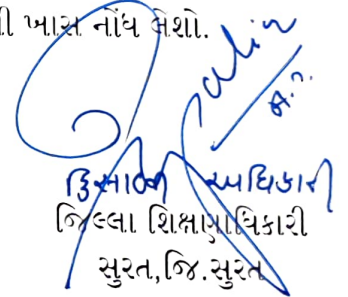 ી ખાસ નોંધ લેશો.
અધિકારી
જિલ્લા શિક્ષણાધિકારી
સુરત,જિ.સુરત